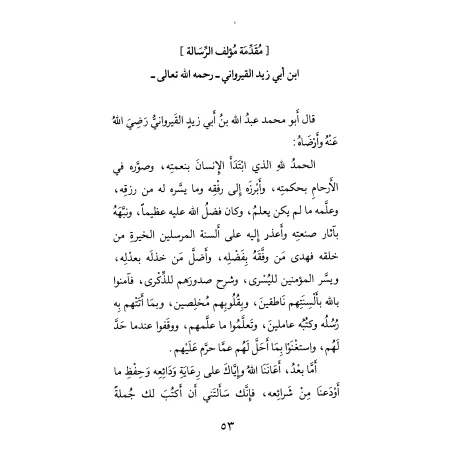 [ مُقَدِّمَة مُؤلف الرِّسَالة ]
ابن أبي زيد القيرواني ـ رحمه الله تعالى ـ
قال أَبو محمد عبدُ الله بنُ أَبي زيدٍ القَيروانيُّ رَضِيَ اللهُ
عَنْهُ وأَرْضَاهُ :
الحمدُ للهِ الذي ابْتَدَأَ الإِنسانَ بنعمتِه، وصوَّره في
الأَرحامِ بحكمتِه، وأَبرزَه إِلى رفْقِه وما يسَّره له من رزقِه،
وعلَّمه ما لم يكن يعلمُ، وكان فضلُ الله عليه عظيماً، ونبَّهَهُ
بآثار صنعتِه وأعذر إليه على ألسنة المرسلين الخيرةِ من
خلقه فهدى مَن وفَّقَهُ بِفَضْلِه، وأَضلَّ مَن خذلَه بعدْلِه،
ويسَّر المؤمنين لليُسْرى، وشرح صدورَهم للذِّكْرى، فآمنوا
بالله بأَلْسِنَتِهم نَاطقينَ، وبِقُلُوبِهم مُخلِصين، وبمَا أَتَتْهُم بِهِ
رُسُلُه وكتُبُه عاملينَ، وتَعلَّمُوا ما علَّمهم، ووقَفوا عندما حَدَّ
لَهُم، واستغْنَوْا بِمَا أَحَلَّ لَهُم عمَّا حرَّم عَلَيْهم .
أَمَّا بعْدُ، أَعَانَنَا اللهُ وإِيَّاكَ على رِعَايَةِ وَدَائِعِه وَحِفْظِ ما
أَوْدَعنَا مِنْ شرائِعِه، فإِنَّك سَأَلتَني أَن أَكتُبَ لك جُملةً
٥٣